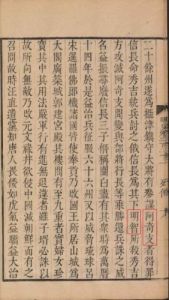 二十餘州遂為攝津鎮守大將有參謀阿奇支者得罪
信長命秀吉統兵討之俄信長為其下明智所殺秀吉
方攻滅阿奇支聞變與部將行長等乘勝還兵誅之威
名益振尋廢信長三子僭稱關白盡有其眾時為萬曆
十四年於是益治兵征服六十六州又以威脅琉球呂
宋暹羅佛郎機諸國皆使奉貢乃改國王所居山城為
大閣廣築城郭建宮殿其樓閣有至九重者實婦女珍
寶其中其用法嚴軍行有進無退違者雖子壻必誅以
故所向無敵乃改元文祿並欲侵中國滅朝鮮而有之
召問故時汪直遺黨知唐人畏倭如虎氣益驕益大治